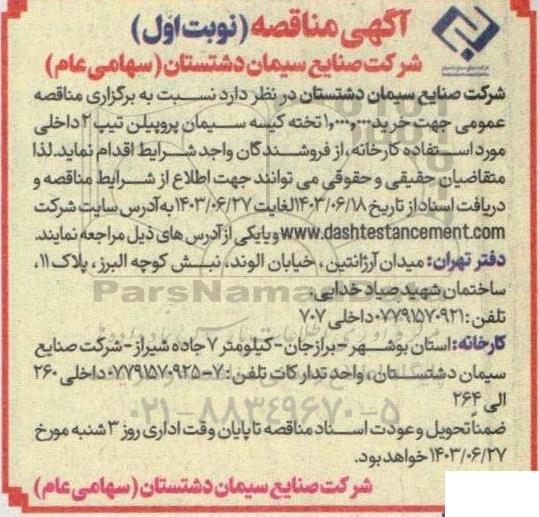 آگهی مناقصه (نوبت اول)
شرکت صنایع سیمان دشتستان (سهامی عام)
شرکت صنایع سیمان دشتستان در نظر دارد نسبت به برگزاری مناقصه
عمومی جهت خرید ۱,۰۰۰,۰۰۰ تخته کیسه سیمان پروپیلن تیپ ۲ داخلی
مورد استفاده کارخانه، از فروشندگان واجد شرایط اقدام نماید. لذا
متقاضیان حقیقی و حقوقی می توانند جهت اطلاع از شرایط مناقصه و
دریافت اسناد از تاریخ ۱۴۰۳/۰۶/۱۸ لغایت ۱۴۰۳/۰۶/۲۷ به آدرس سایت شرکت
www.dashtestancement.com و یا یکی از آدرس های ذیل مراجعه نمایند.
دفتر تهران: میدان آرژانتین، خیابان الوند، نبش کوچه البرز، پلاک ۱۱،
ساختمان شهید صیاد خدایی.
ParsNamadData
تلفن: ۰۷۷۹۱۵۷۰۹۲۱ داخلی ۷۰۷
کارخانه: استان بوشهر - برازجان - کیلومتر ۷ جاده شیراز - شرکت صنایع
سیمان دشتستان، واحد تدارکات تلفن: ۷-۰۷۷۹۱۵۷۰۹۲۵ داخلی ۲۶۰
الی ۲۶۴
۰۲۱-۸۸۳۴۹۶۷۰-۵
ضمناً تحویل و عودت اسناد مناقصه تا پایان وقت اداری روز ۳ شنبه مورخ
۱۴۰۳/۰۶/۲۷ خواهد بود.
شرکت صنایع سیمان دشتستان (سهامی عام)